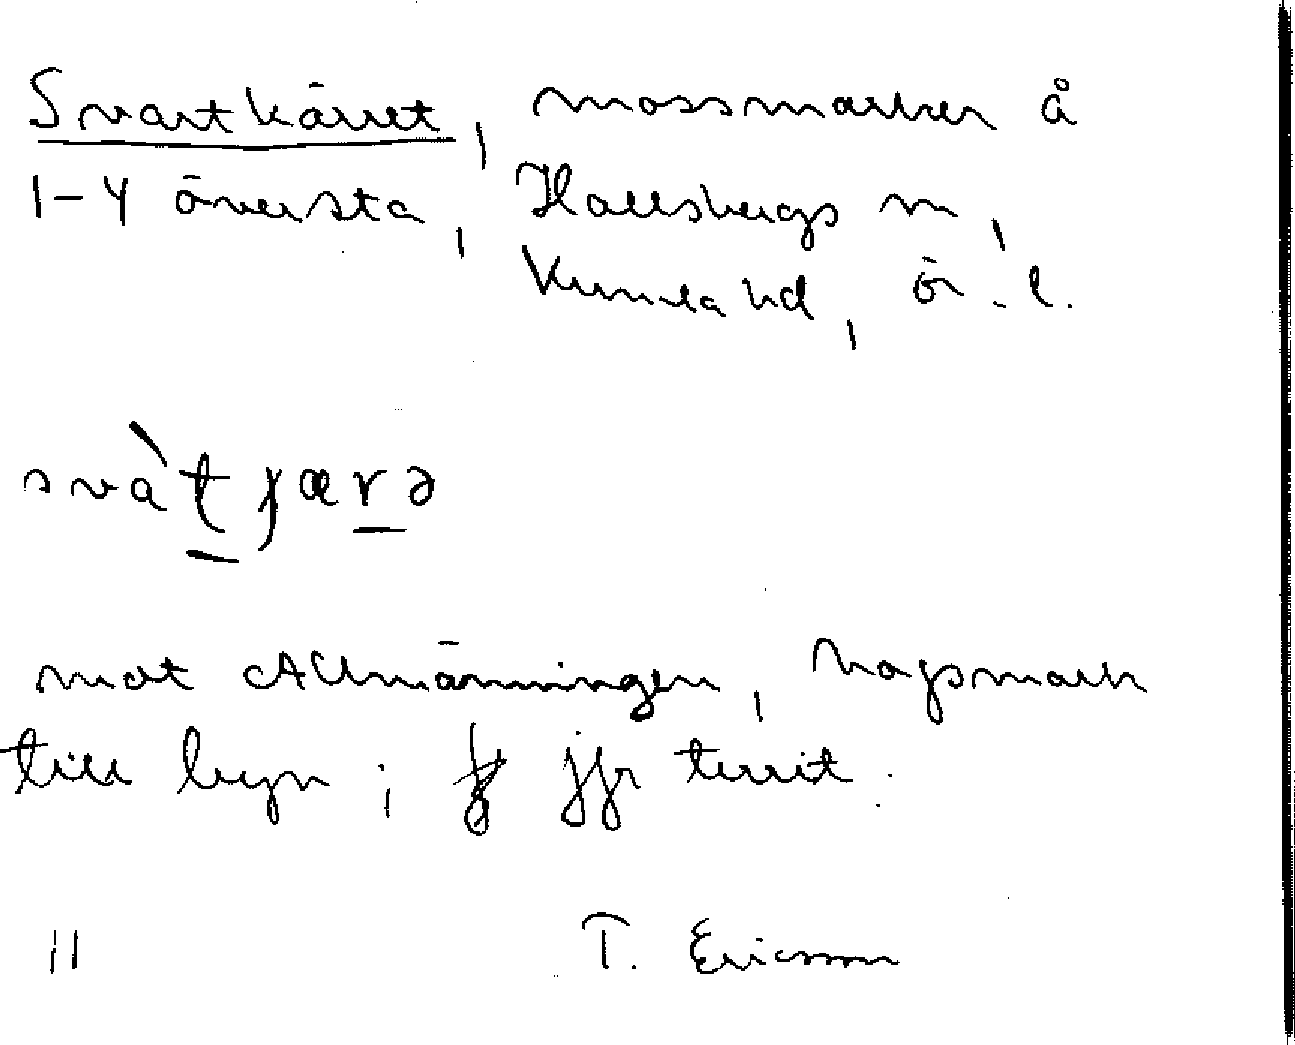 Svartkärret, mossmarker å
1-4 översta, Hallsbergs sn,
Kumla hd, Ör. l.
svàt ɟærə
mot Allmänningen, hagsmark
till byn; jfr territ.
11 T. Ericsson